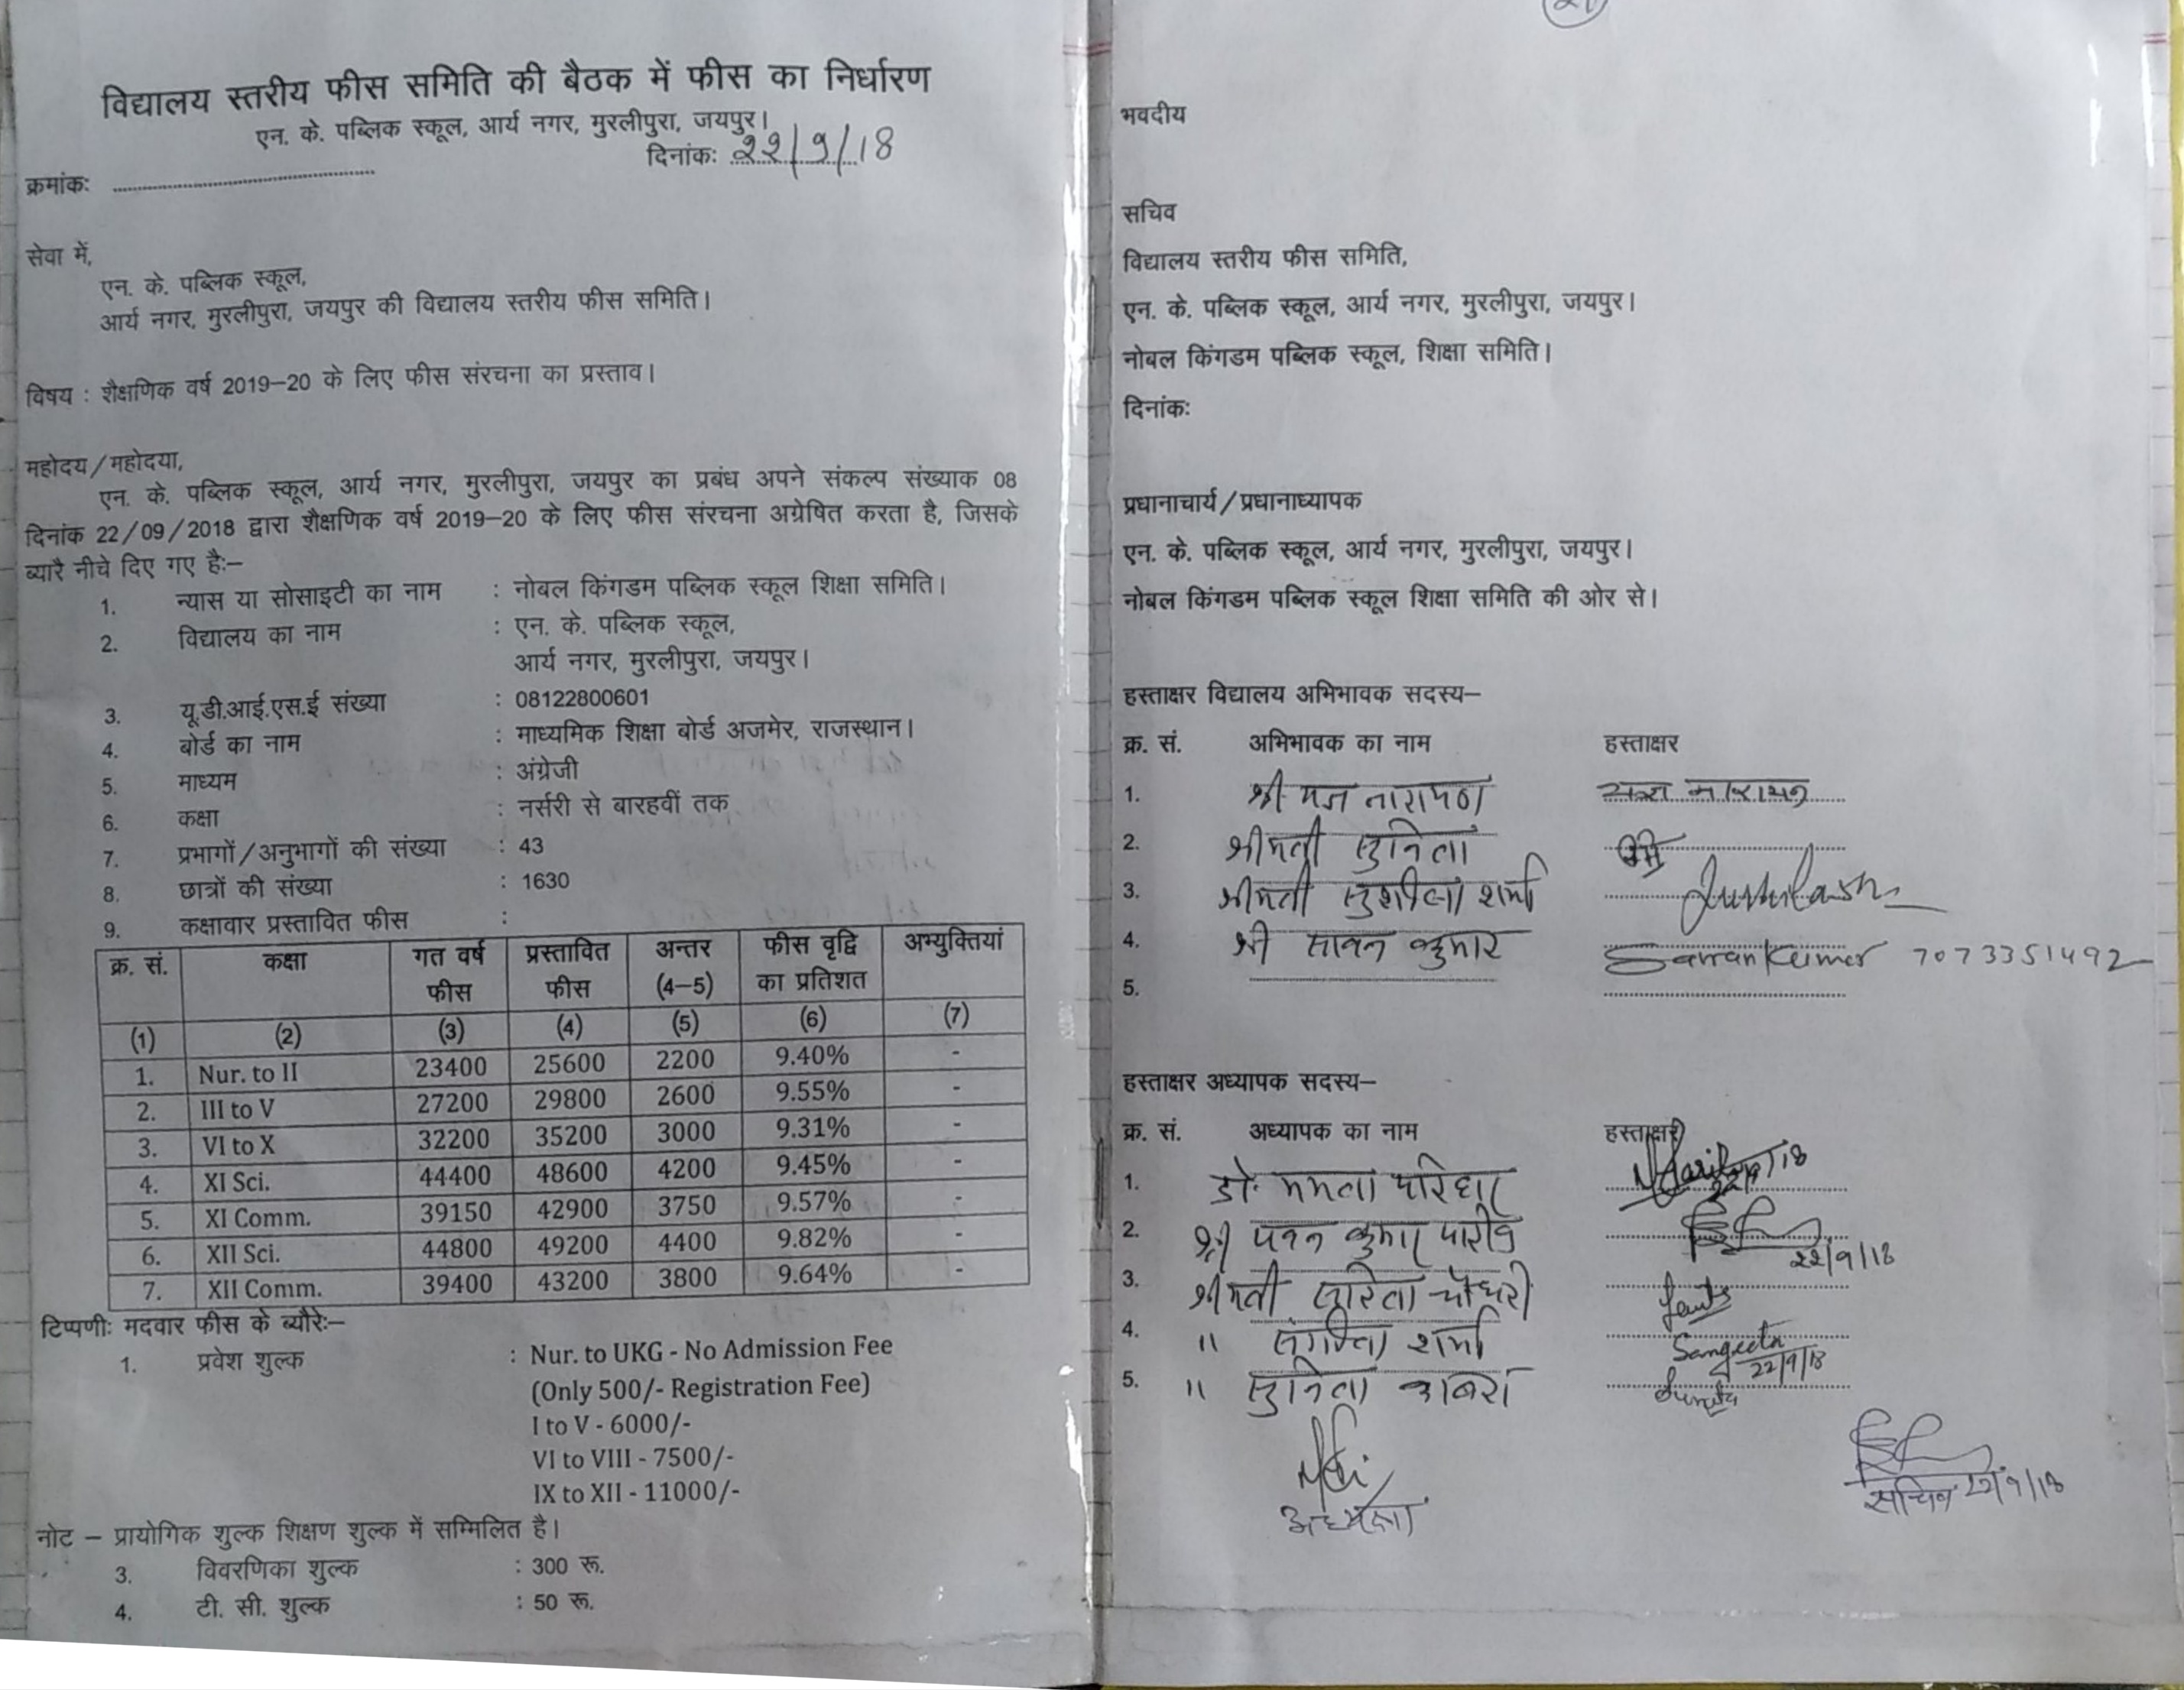 विद्यालय स्तरीय फीस समिति की बैठक में फीस का निर्धारण
एन. के. पब्लिक स्कूल, आर्य नगर, मुरलीपुरा, जयपुर।
दिनांक: 22/9/18
क्रमांक:
सेवा में,
एन. के. पब्लिक स्कूल,
आर्य नगर, मुरलीपुरा, जयपुर की विद्यालय स्तरीय फीस समिति।
विषय : शैक्षणिक वर्ष 2019–20 के लिए फीस संरचना का प्रस्ताव।
महोदय/महोदया,
एन. के. पब्लिक स्कूल, आर्य नगर, मुरलीपुरा, जयपुर का प्रबंध अपने संकल्प संख्याक 08
दिनांक 22/09/2018 द्वारा शैक्षणिक वर्ष 2019–20 के लिए फीस संरचना अग्रेषित करता है, जिसके
ब्यारै नीचे दिए गए है:–
1. न्यास या सोसाइटी का नाम : नोबल किंगडम पब्लिक स्कूल शिक्षा समिति।
2. विद्यालय का नाम : एन. के. पब्लिक स्कूल,
आर्य नगर, मुरलीपुरा, जयपुर।
3. यू.डी.आई.एस.ई संख्या : 08122800601
4. बोर्ड का नाम : माध्यमिक शिक्षा बोर्ड अजमेर, राजस्थान।
5. माध्यम : अंग्रेजी
6. कक्षा : नर्सरी से बारहवीं तक
7. प्रभागों/अनुभागों की संख्या : 43
8. छात्रों की संख्या : 1630
9. कक्षावार प्रस्तावित फीस :
क्र. सं. कक्षा गत वर्ष फीस प्रस्तावित फीस अन्तर (4–5) फीस वृद्वि का प्रतिशत अभ्युक्तियां
(1) (2) (3) (4) (5) (6) (7)
1. Nur. to II 23400 25600 2200 9.40% -
2. III to V 27200 29800 2600 9.55% -
3. VI to X 32200 35200 3000 9.31% -
4. XI Sci. 44400 48600 4200 9.45% -
5. XI Comm. 39150 42900 3750 9.57% -
6. XII Sci. 44800 49200 4400 9.82% -
7. XII Comm. 39400 43200 3800 9.64% -
टिप्पणी: मदवार फीस के ब्यौरे:–
1. प्रवेश शुल्क : Nur. to UKG - No Admission Fee
(Only 500/- Registration Fee)
I to V - 6000/-
VI to VIII - 7500/-
IX to XII - 11000/-
नोट – प्रायोगिक शुल्क शिक्षण शुल्क में सम्मिलित है।
3. विवरणिका शुल्क : 300 रू.
4. टी. सी. शुल्क : 50 रू.
भवदीय
सचिव
विद्यालय स्तरीय फीस समिति,
एन. के. पब्लिक स्कूल, आर्य नगर, मुरलीपुरा, जयपुर।
नोबल किंगडम पब्लिक स्कूल, शिक्षा समिति।
दिनांक:
प्रधानाचार्य/प्रधानाध्यापक
एन. के. पब्लिक स्कूल, आर्य नगर, मुरलीपुरा, जयपुर।
नोबल किंगडम पब्लिक स्कूल शिक्षा समिति की ओर से।
हस्ताक्षर विद्यालय अभिभावक सदस्य–
क्र. सं. अभिभावक का नाम हस्ताक्षर
1. श्री यज्ञ नारायण
2. श्रीमती सुनिता
3. श्रीमती सुशीला शर्मा
4. श्री सावन कुमार Sawan Kumar 7073351492
5.
हस्ताक्षर अध्यापक सदस्य–
क्र. सं. अध्यापक का नाम हस्ताक्षर
1. डॉ. ममता परिहार
2. श्री पवन कुमार पारीक 22/9/18
3. श्रीमती सरिता चौधरी
4. " संगीता शर्मा Sangeeta 22/9/18
5. " सुनिता काबरा Sunita
अध्यक्षा
सचिव 22/9/18